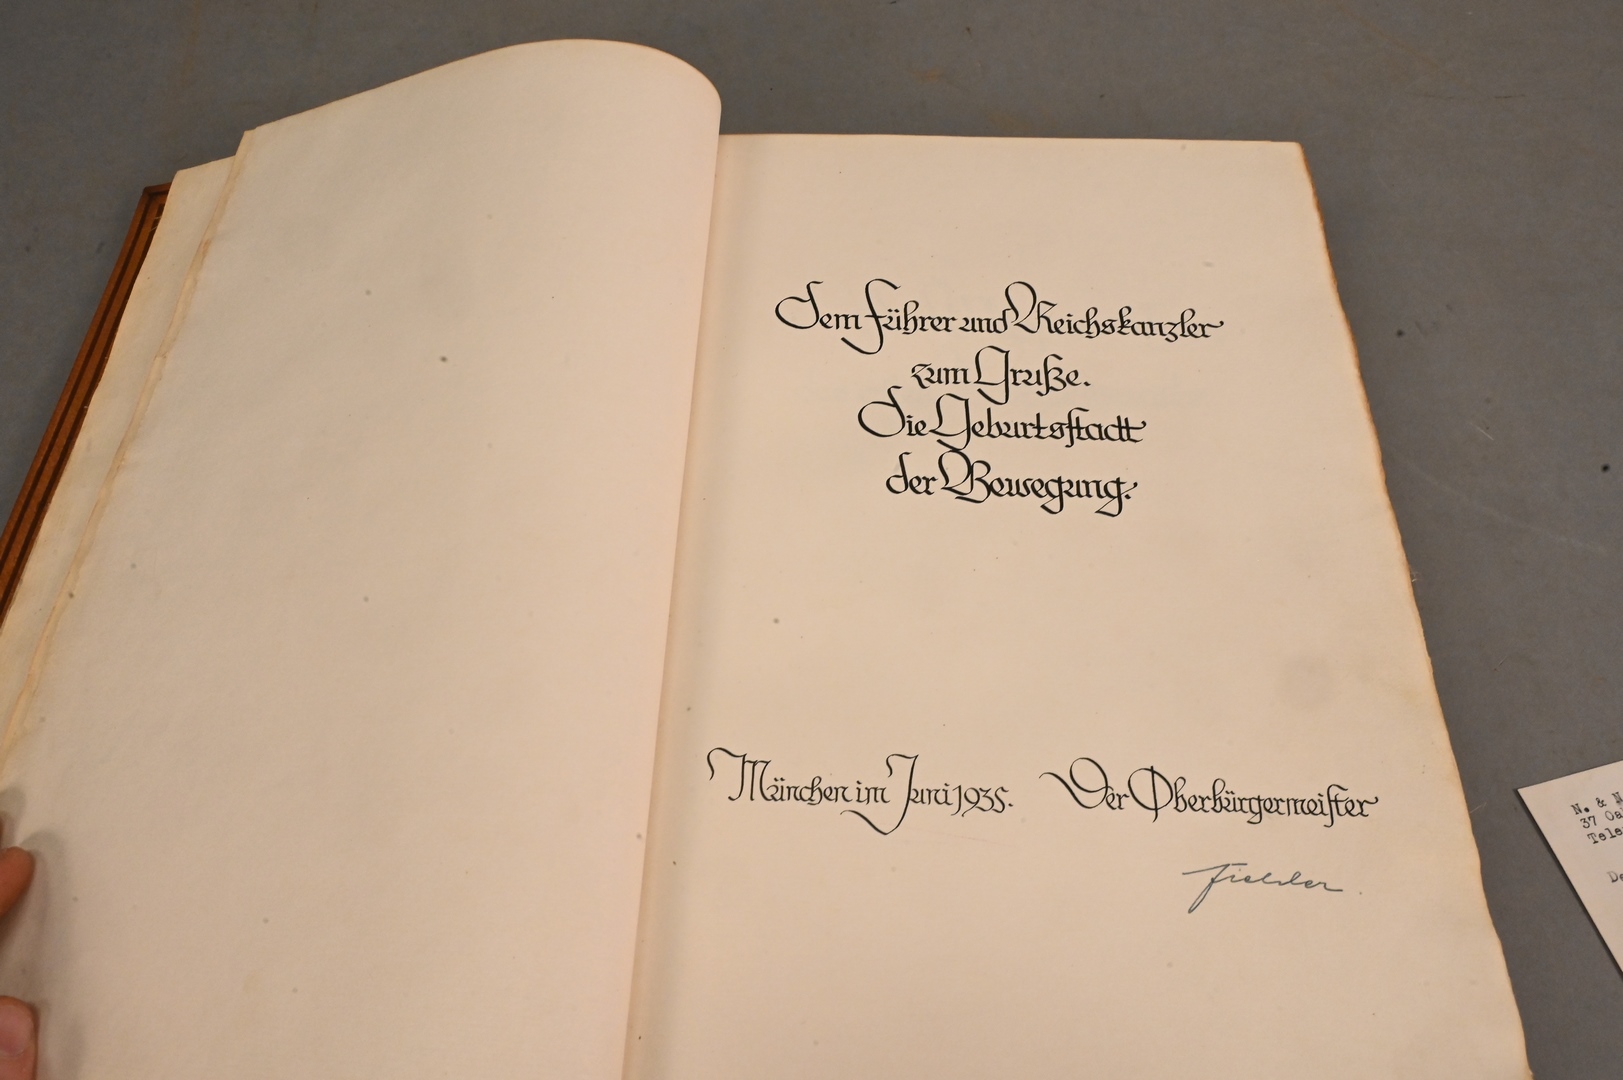 Dem Führer und Reichskanzler
zum Gruße.
Die Geburtsstadt
der Bewegung.
München im Juni 1935. Der Oberbürgermeister
Fiehler
N. & N
37 Oa
Tele
De